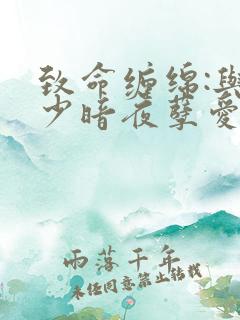 致命缠绵:與
少暗夜孽爱
雨落千年
未经同意禁止转载